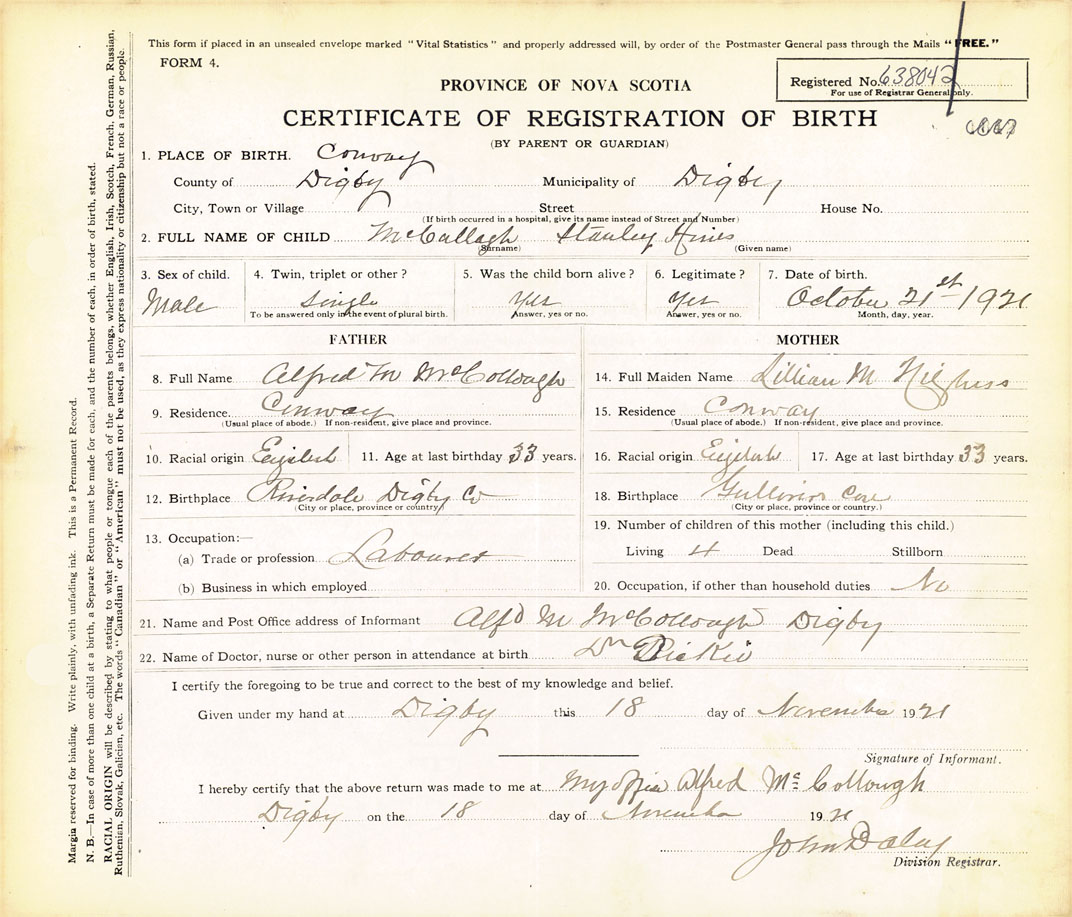 This form if placed in an unsealed envelope marked "Vital Statistics" and properly addressed will, by order of the Postmaster General pass through the Mails "FREE."
FORM 4.
Registered No. 638042
For use of Registrar General only.
PROVINCE OF NOVA SCOTIA
CERTIFICATE OF REGISTRATION OF BIRTH
(BY PARENT OR GUARDIAN)
1. PLACE OF BIRTH. Conway
County of Digby Municipality of Digby
City, Town or Village Street House No.
(If birth occurred in a hospital, give its name instead of Street and Number)
2. FULL NAME OF CHILD McCullagh Stanley Hines
(Surname) (Given name)
3. Sex of child. 4. Twin, triplet or other? 5. Was the child born alive? 6. Legitimate? 7. Date of birth.
Male Single Yes Yes October 21st 1921
To be answered only in the event of plural birth. Answer, yes or no. Answer, yes or no. Month, day, year.
FATHER MOTHER
8. Full Name Alfred M McCollough 14. Full Maiden Name Lillian M
9. Residence. Conway 15. Residence Conway
(Usual place of abode.) If non-resident, give place and province. (Usual place of abode.) If non-resident, give place and province.
10. Racial origin English 11. Age at last birthday 33 years. 16. Racial origin English 17. Age at last birthday 33 years.
12. Birthplace Riverdale Digby Co 18. Birthplace Gullivers Cove
(City or place, province or country) (City or place, province or country.)
13. Occupation:— 19. Number of children of this mother (including this child.)
(a) Trade or profession Labourer Living 4 Dead Stillborn
(b) Business in which employed 20. Occupation, if other than household duties No
21. Name and Post Office address of Informant Alfd M McCollough Digby
22. Name of Doctor, nurse or other person in attendance at birth Dr Dickie
I certify the foregoing to be true and correct to the best of my knowledge and belief.
Given under my hand at Digby this 18 day of November 1921
Signature of Informant.
I hereby certify that the above return was made to me at My office Alfred McCollough
Digby on the 18 day of November 1921
John Daley
Division Registrar.
Margia reserved for binding. Write plainly, with unfading ink. This is a Permanent Record.
N. B.—In case of more than one child at a birth, a Separate Return must be made for each, and the number of each, in order of birth, stated.
RACIAL ORIGIN will be described by stating to what people or tongue each of the parents belongs, whether English, Irish, Scotch, French, German, Russian,
Ruthenian, Slovak, Galician, etc. The words "Canadian" or "American" must not be used, as they express nationality or citizenship but not a race or people.